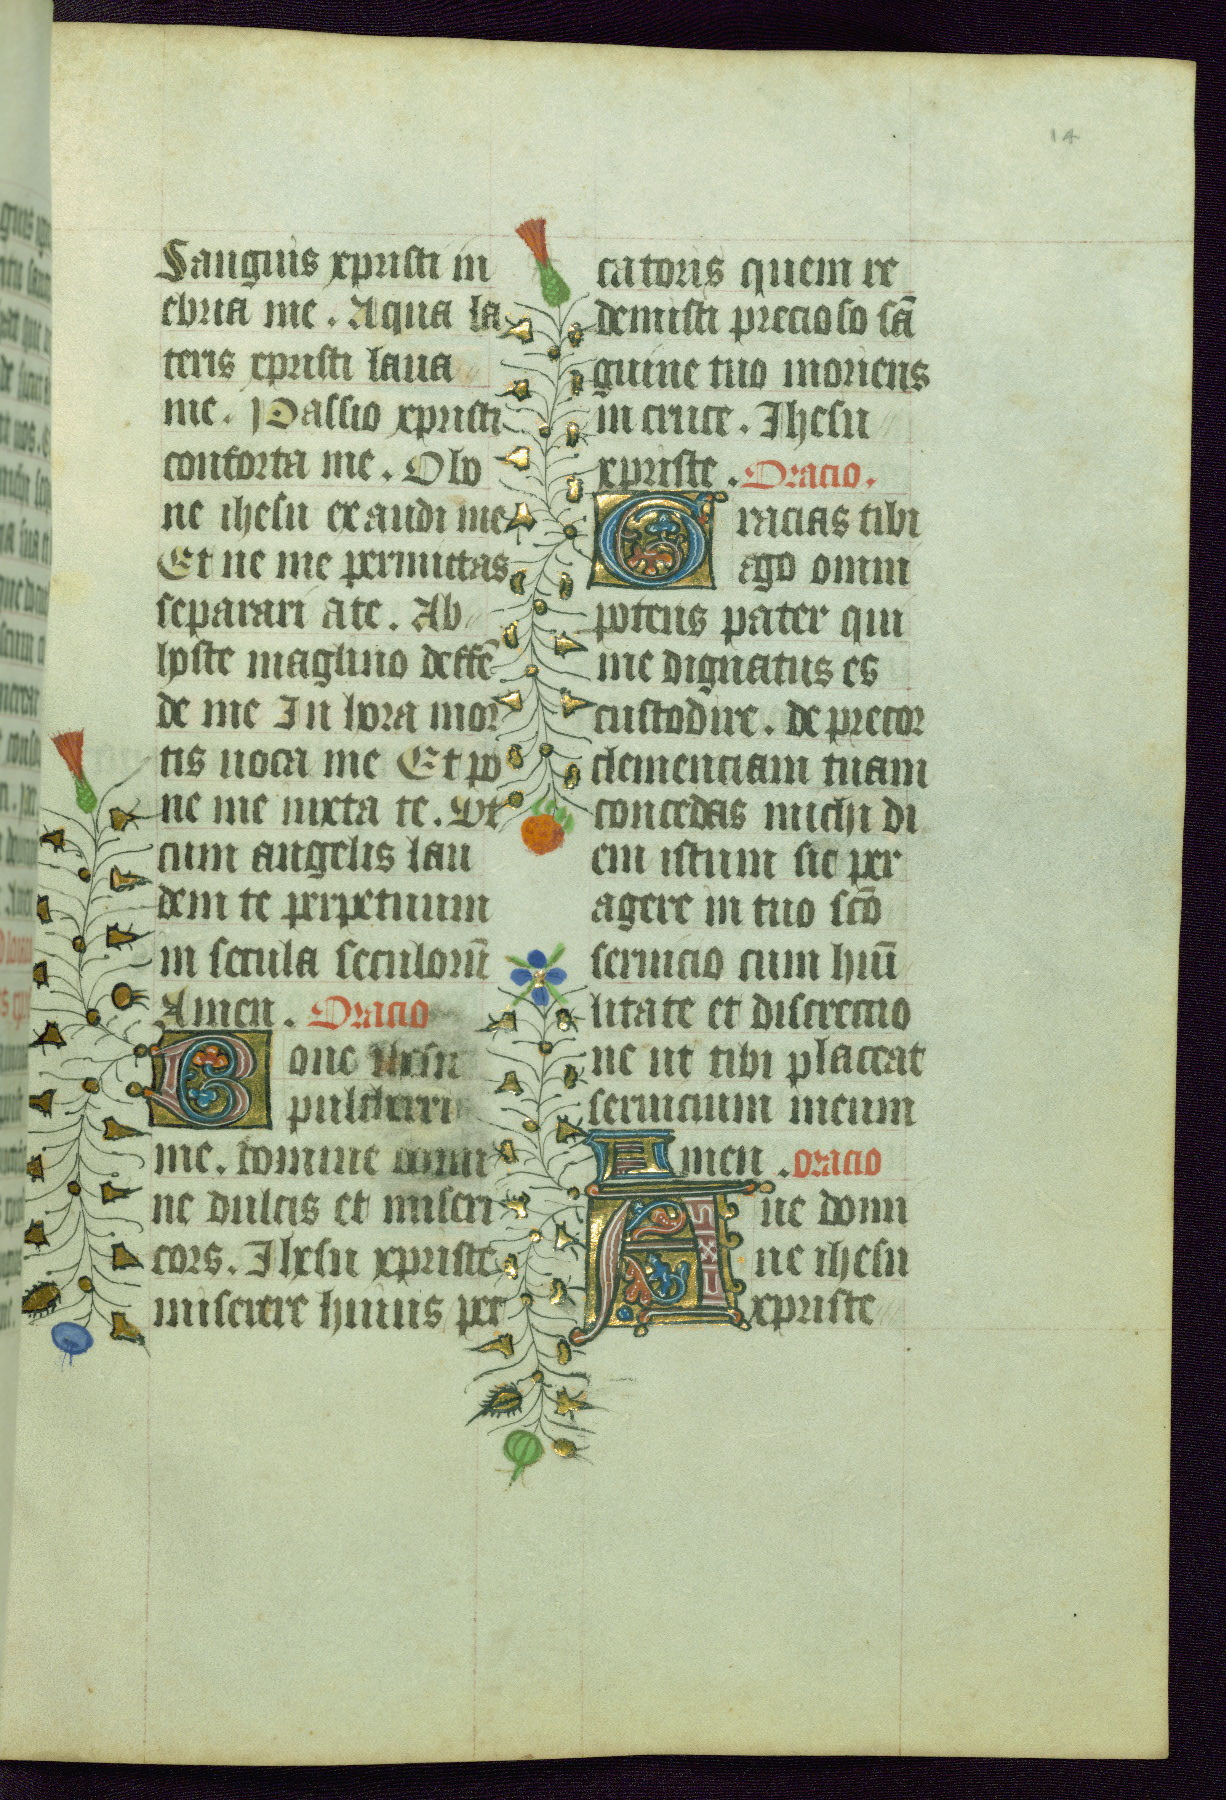 14
Sanguis xpristi in
ebria me. Aqua la
teris xpristi laua
me. Passio xpristi
conforta me. O bo
ne ihesu exaudi me
Et ne me permittas
separari a te. Ab
hoste maglino deffē
de me In hora mor
tis uoca me Et po
ne me iuxta te. Vt
cum angelis lau
dem te perpetuum
in secula seculorū
Amen. Oracio
Bone ihesu
pulcherri
me. domine domi
ne dulcis et miseri
cors. Ihesu xpriste
miserere huius pec
catoris quem re
demisti precioso sā
guine tuo moriens
in cruce. Ihesu
xpriste. Oracio.
Gracias tibi
ago omni
potens pater qui
me dignatus es
custodire. de precor
clemenciam tuam
concedas michi di
em istum sic per
agere in tuo scō
seruicio cum hūi
litate et discrecio
ne ut tibi placeat
seruicium meum
Amen. oracio
Aue domi
ne ihesu
xpriste